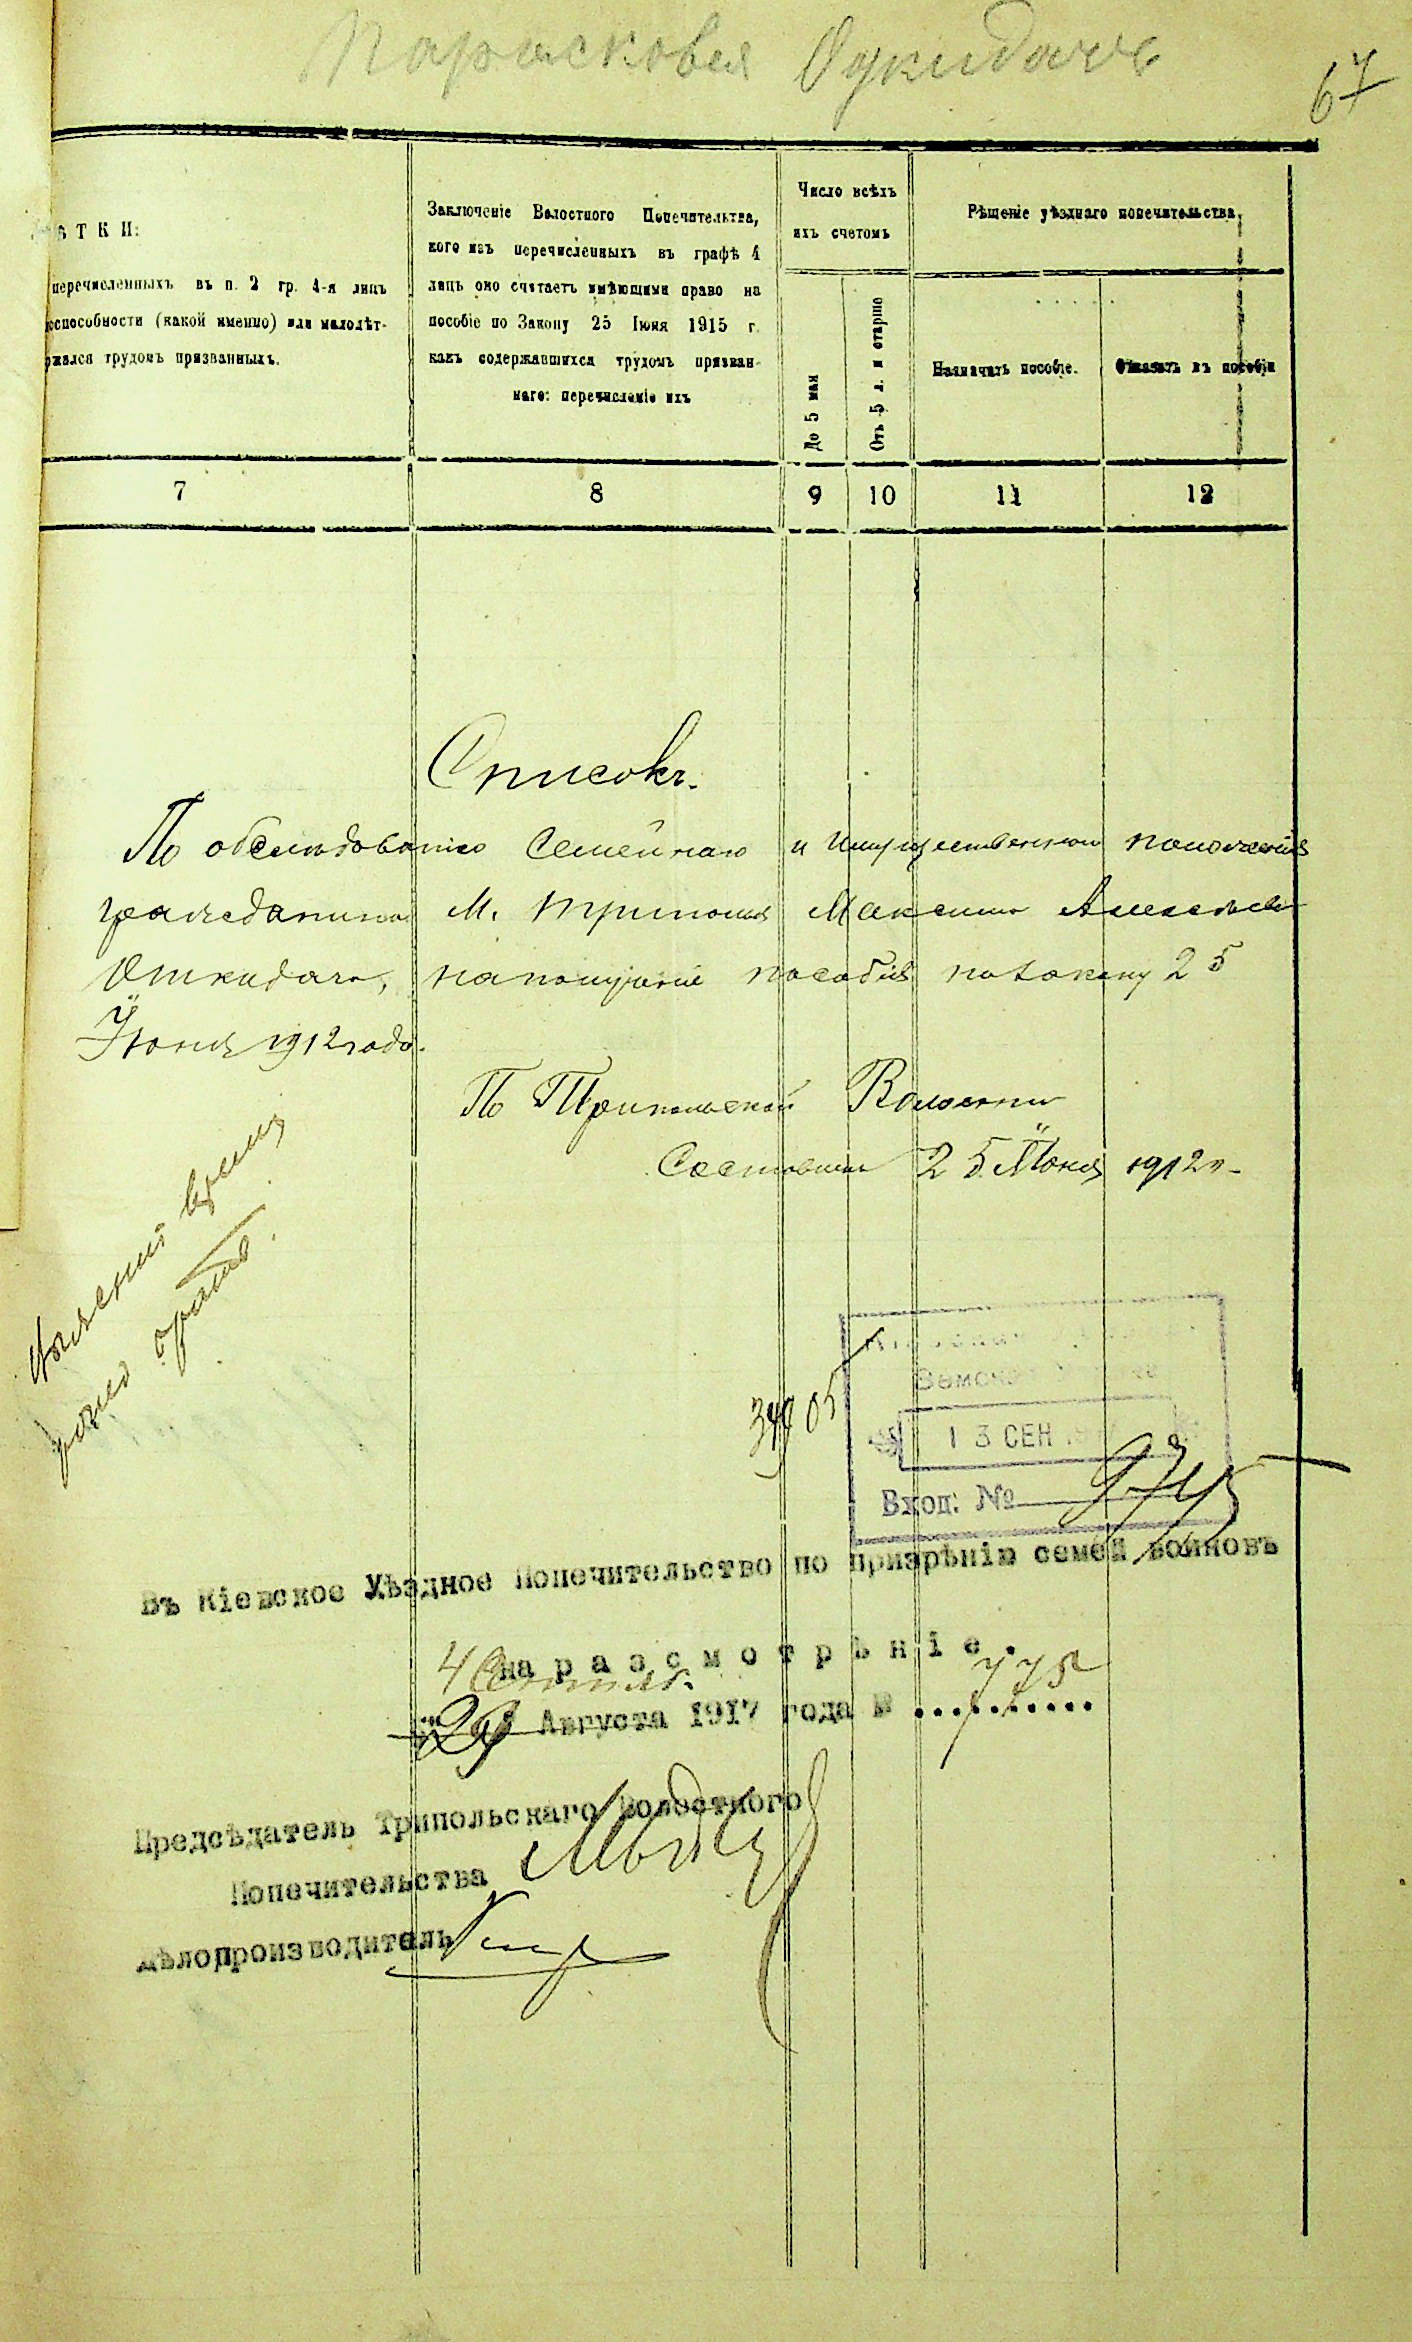 Парасковея Одкидачъ
67
ТКИ:
перечисленныхъ въ п. 2 гр. 4-я лицъ
способности (какой именно) или малолѣт-
жался трудомъ призванныхъ.
Заключеніе Волостного Попечительства,
кого изъ перечисленныхъ въ графѣ 4
лицъ оно считаетъ имѣющими право на
пособіе по Закону 25 Іюня 1915 г.
какъ содержавшихся трудомъ призван-
наго: перечисленіе ихъ
Число всѣхъ
ихъ счетомъ
До 5 мая
Отъ 5 л. и старше
Рѣшеніе уѣзднаго попечительства.
Назначить пособіе.
Отказать въ пособіи
7 8 9 10 11 12
Списокъ.
По обслѣдованію Семейнаго и имущественнаго положенія
гражданина М. Триполья Максима Алексѣева
Откидача, на полученіе пособія по закону 25
Іюня 1912 года.
По Трипольской Волости
Составленъ 25 Іюня 1912 г.
время
34905
Земская
13 СЕН
Вход. №
Въ Кіевское Уѣздное Попечительство по призрѣнію семей воиновъ
на разсмотрѣніе.
4 Сентяб.
29 Августа 1917 года № 775
Предсѣдатель Трипольскаго Волостного
Попечительства
Дѣлопроизводитель